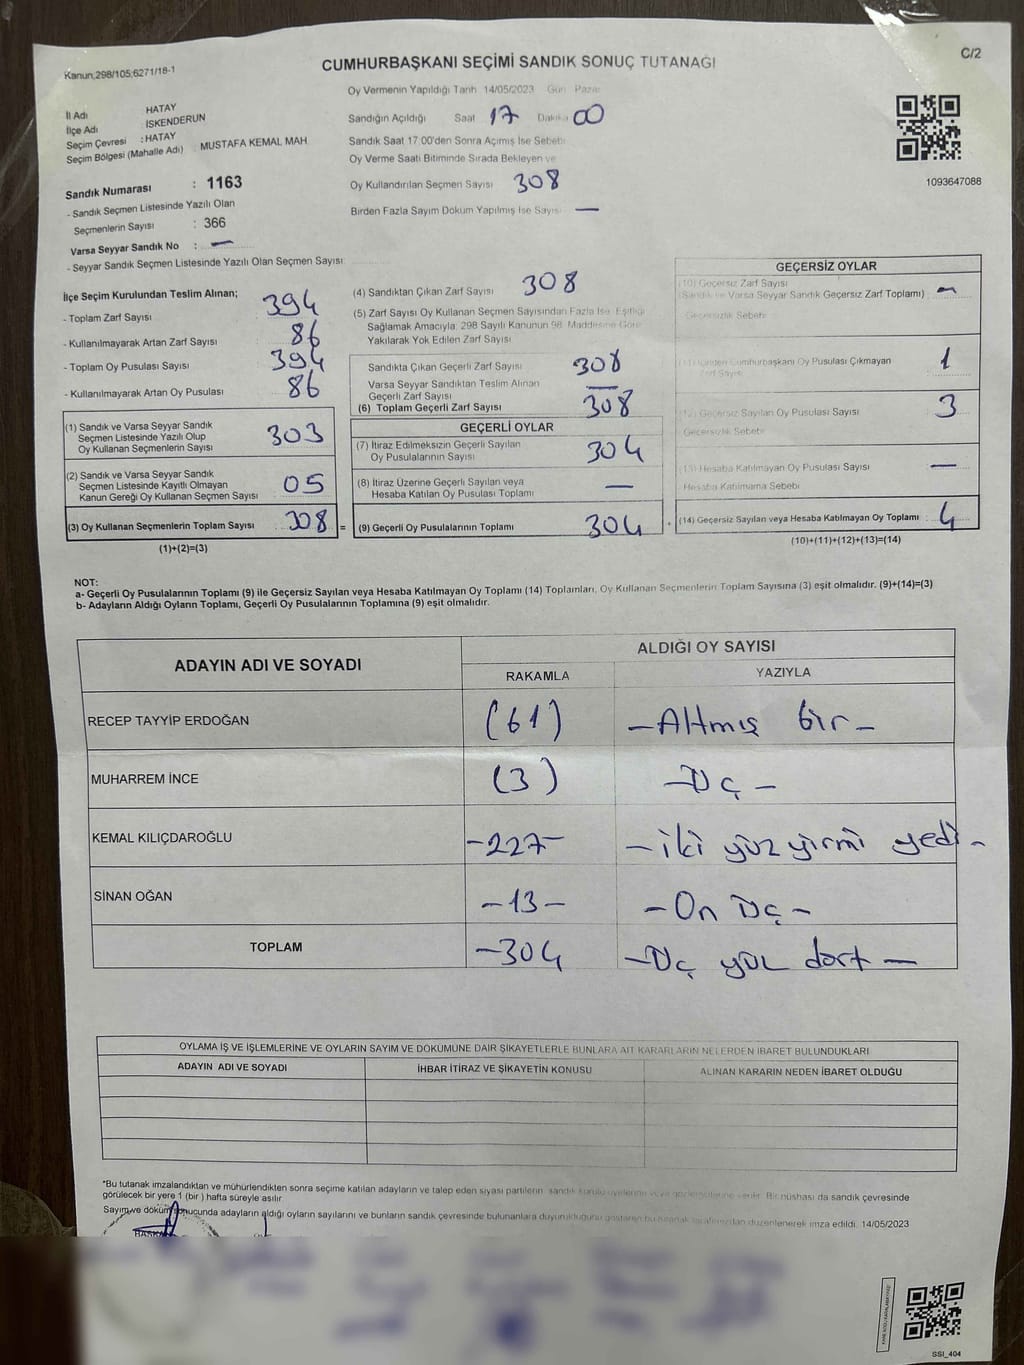 Kanun,298/105;6271/18-1
CUMHURBAŞKANI SEÇİMİ SANDIK SONUÇ TUTANAĞI
C/2
Oy Vermenin Yapıldığı Tarih 14/05/2023 Gün Pazar
İl Adı HATAY
İlçe Adı İSKENDERUN
Seçim Çevresi : HATAY
Seçim Bölgesi (Mahalle Adı) MUSTAFA KEMAL MAH
Sandığın Açıldığı Saat 17 Dakika 00
Sandık Saat 17:00'den Sonra Açımış İse Sebebi
Oy Verme Saati Bitiminde Sırada Bekleyen ve
Oy Kullandırılan Seçmen Sayısı 308
Birden Fazla Sayım Döküm Yapılmış İse Sayısı —
1093647088
Sandık Numarası : 1163
- Sandık Seçmen Listesinde Yazılı Olan
Seçmenlerin Sayısı : 366
Varsa Seyyar Sandık No : —
- Seyyar Sandık Seçmen Listesinde Yazılı Olan Seçmen Sayısı:
İlçe Seçim Kurulundan Teslim Alınan;
- Toplam Zarf Sayısı 394
- Kullanılmayarak Artan Zarf Sayısı 86
- Toplam Oy Pusulası Sayısı 394
- Kullanılmayarak Artan Oy Pusulası 86
(1) Sandık ve Varsa Seyyar Sandık
Seçmen Listesinde Yazılı Olup
Oy Kullanan Seçmenlerin Sayısı 303
(2) Sandık ve Varsa Seyyar Sandık
Seçmen Listesinde Kayıtlı Olmayan
Kanun Gereği Oy Kullanan Seçmen Sayısı 05
(3) Oy Kullanan Seçmenlerin Toplam Sayısı 308 =
(1)+(2)=(3)
(4) Sandıktan Çıkan Zarf Sayısı 308
(5) Zarf Sayısı Oy Kullanan Seçmen Sayısından Fazla İse, Eşitliği
Sağlamak Amacıyla; 298 Sayılı Kanunun 98. Maddesine Göre
Yakılarak Yok Edilen Zarf Sayısı
Sandıkta Çıkan Geçerli Zarf Sayısı 308
Varsa Seyyar Sandıktan Teslim Alınan
Geçerli Zarf Sayısı —
(6) Toplam Geçerli Zarf Sayısı 308
GEÇERLİ OYLAR
(7) İtiraz Edilmeksizin Geçerli Sayılan
Oy Pusulalarının Sayısı 304
(8) İtiraz Üzerine Geçerli Sayılan veya
Hesaba Katılan Oy Pusulası Toplamı —
(9) Geçerli Oy Pusulalarının Toplamı 304
GEÇERSİZ OYLAR
(10) Geçersiz Zarf Sayısı
(Sandık ve Varsa Seyyar Sandık Geçersiz Zarf Toplamı) —
Geçersizlik Sebebi
(11) İçinden Cumhurbaşkanı Oy Pusulası Çıkmayan
Zarf Sayısı 1
(12) Geçersiz Sayılan Oy Pusulası Sayısı 3
Geçersizlik Sebebi
(13) Hesaba Katılmayan Oy Pusulası Sayısı —
Hesaba Katılmama Sebebi
(14) Geçersiz Sayılan veya Hesaba Katılmayan Oy Toplamı : 4
(10)+(11)+(12)+(13)=(14)
NOT:
a- Geçerli Oy Pusulalarının Toplamı (9) ile Geçersiz Sayılan veya Hesaba Katılmayan Oy Toplamı (14) Toplamları, Oy Kullanan Seçmenlerin Toplam Sayısına (3) eşit olmalıdır. (9)+(14)=(3)
b- Adayların Aldığı Oyların Toplamı, Geçerli Oy Pusulalarının Toplamına (9) eşit olmalıdır.
ADAYIN ADI VE SOYADI
ALDIĞI OY SAYISI
RAKAMLA YAZIYLA
RECEP TAYYİP ERDOĞAN (61) -Altmış bir-
MUHARREM İNCE (3) -Üç-
KEMAL KILIÇDAROĞLU -227- -iki yüz yirmi yedi-
SİNAN OĞAN -13- -On Üç-
TOPLAM -304 -Üç yüz dört-
OYLAMA İŞ VE İŞLEMLERİNE VE OYLARIN SAYIM VE DÖKÜMÜNE DAİR ŞİKAYETLERLE BUNLARA AİT KARARLARIN NELERDEN İBARET BULUNDUKLARI
ADAYIN ADI VE SOYADI İHBAR İTİRAZ VE ŞİKAYETİN KONUSU ALINAN KARARIN NEDEN İBARET OLDUĞU
*Bu tutanak imzalandıktan ve mühürlendikten sonra seçime katılan adayların ve talep eden siyasi partilerin sandık kurulu üyelerine veya gözlemcilerine verilir. Bir nüshası da sandık çevresinde
görülecek bir yere 1 (bir ) hafta süreyle asılır.
Sayım ve döküm sonucunda adayların aldığı oyların sayılarını ve bunların sandık çevresinde bulunanlara duyurulduğunu gösteren bu tutanak tarafımızdan düzenlenerek imza edildi. 14/05/2023
SSI_404